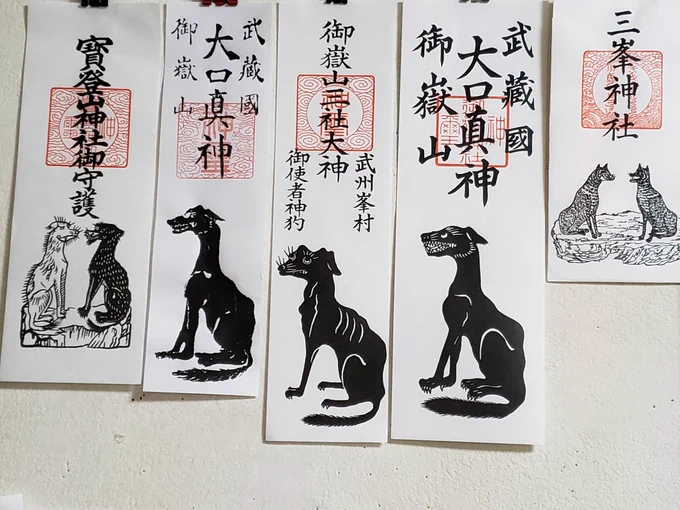 寶登山神社御守護
武藏國
大口真神
御嶽山
御嶽山三社大神
武州峯村
御使者神犳
武藏國
大口真神
御嶽山
三峯神社